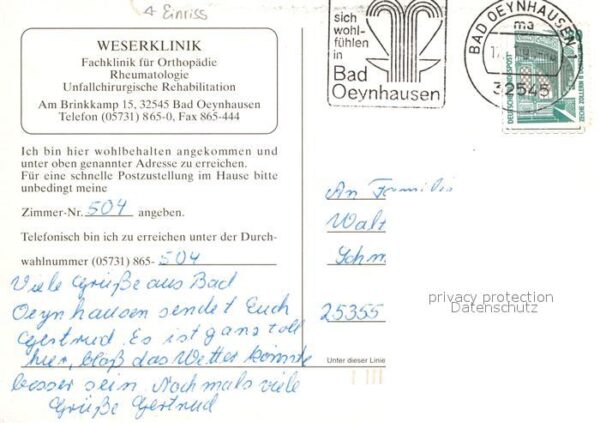 Einriss
WESERKLINIK
Fachklinik für Orthopädie
Rheumatologie
Unfallchirurgische Rehabilitation
Am Brinkkamp 15, 32545 Bad Oeynhausen
Telefon (05731) 865-0, Fax 865-444
Ich bin hier wohlbehalten angekommen und
unter oben genannter Adresse zu erreichen.
Für eine schnelle Postzustellung im Hause bitte
unbedingt meine
Zimmer-Nr. 504 angeben.
Telefonisch bin ich zu erreichen unter der Durch-
wahlnummer (05731) 865-504
Viele Grüße aus Bad
Oeynhausen sendet Euch
Gertrud. Es ist ganz toll
hier, bloß das Wetter könnte
besser sein. Nochmals viele
Grüße Gertrud
sich
wohl-
fühlen
in
Bad
Oeynhausen
BAD OEYNHAUSEN 1
ma
32545
DEUTSCHE BUNDESPOST
An Familie
Walt
Schm
25355
privacy protection
Datenschutz
Unter dieser Linie